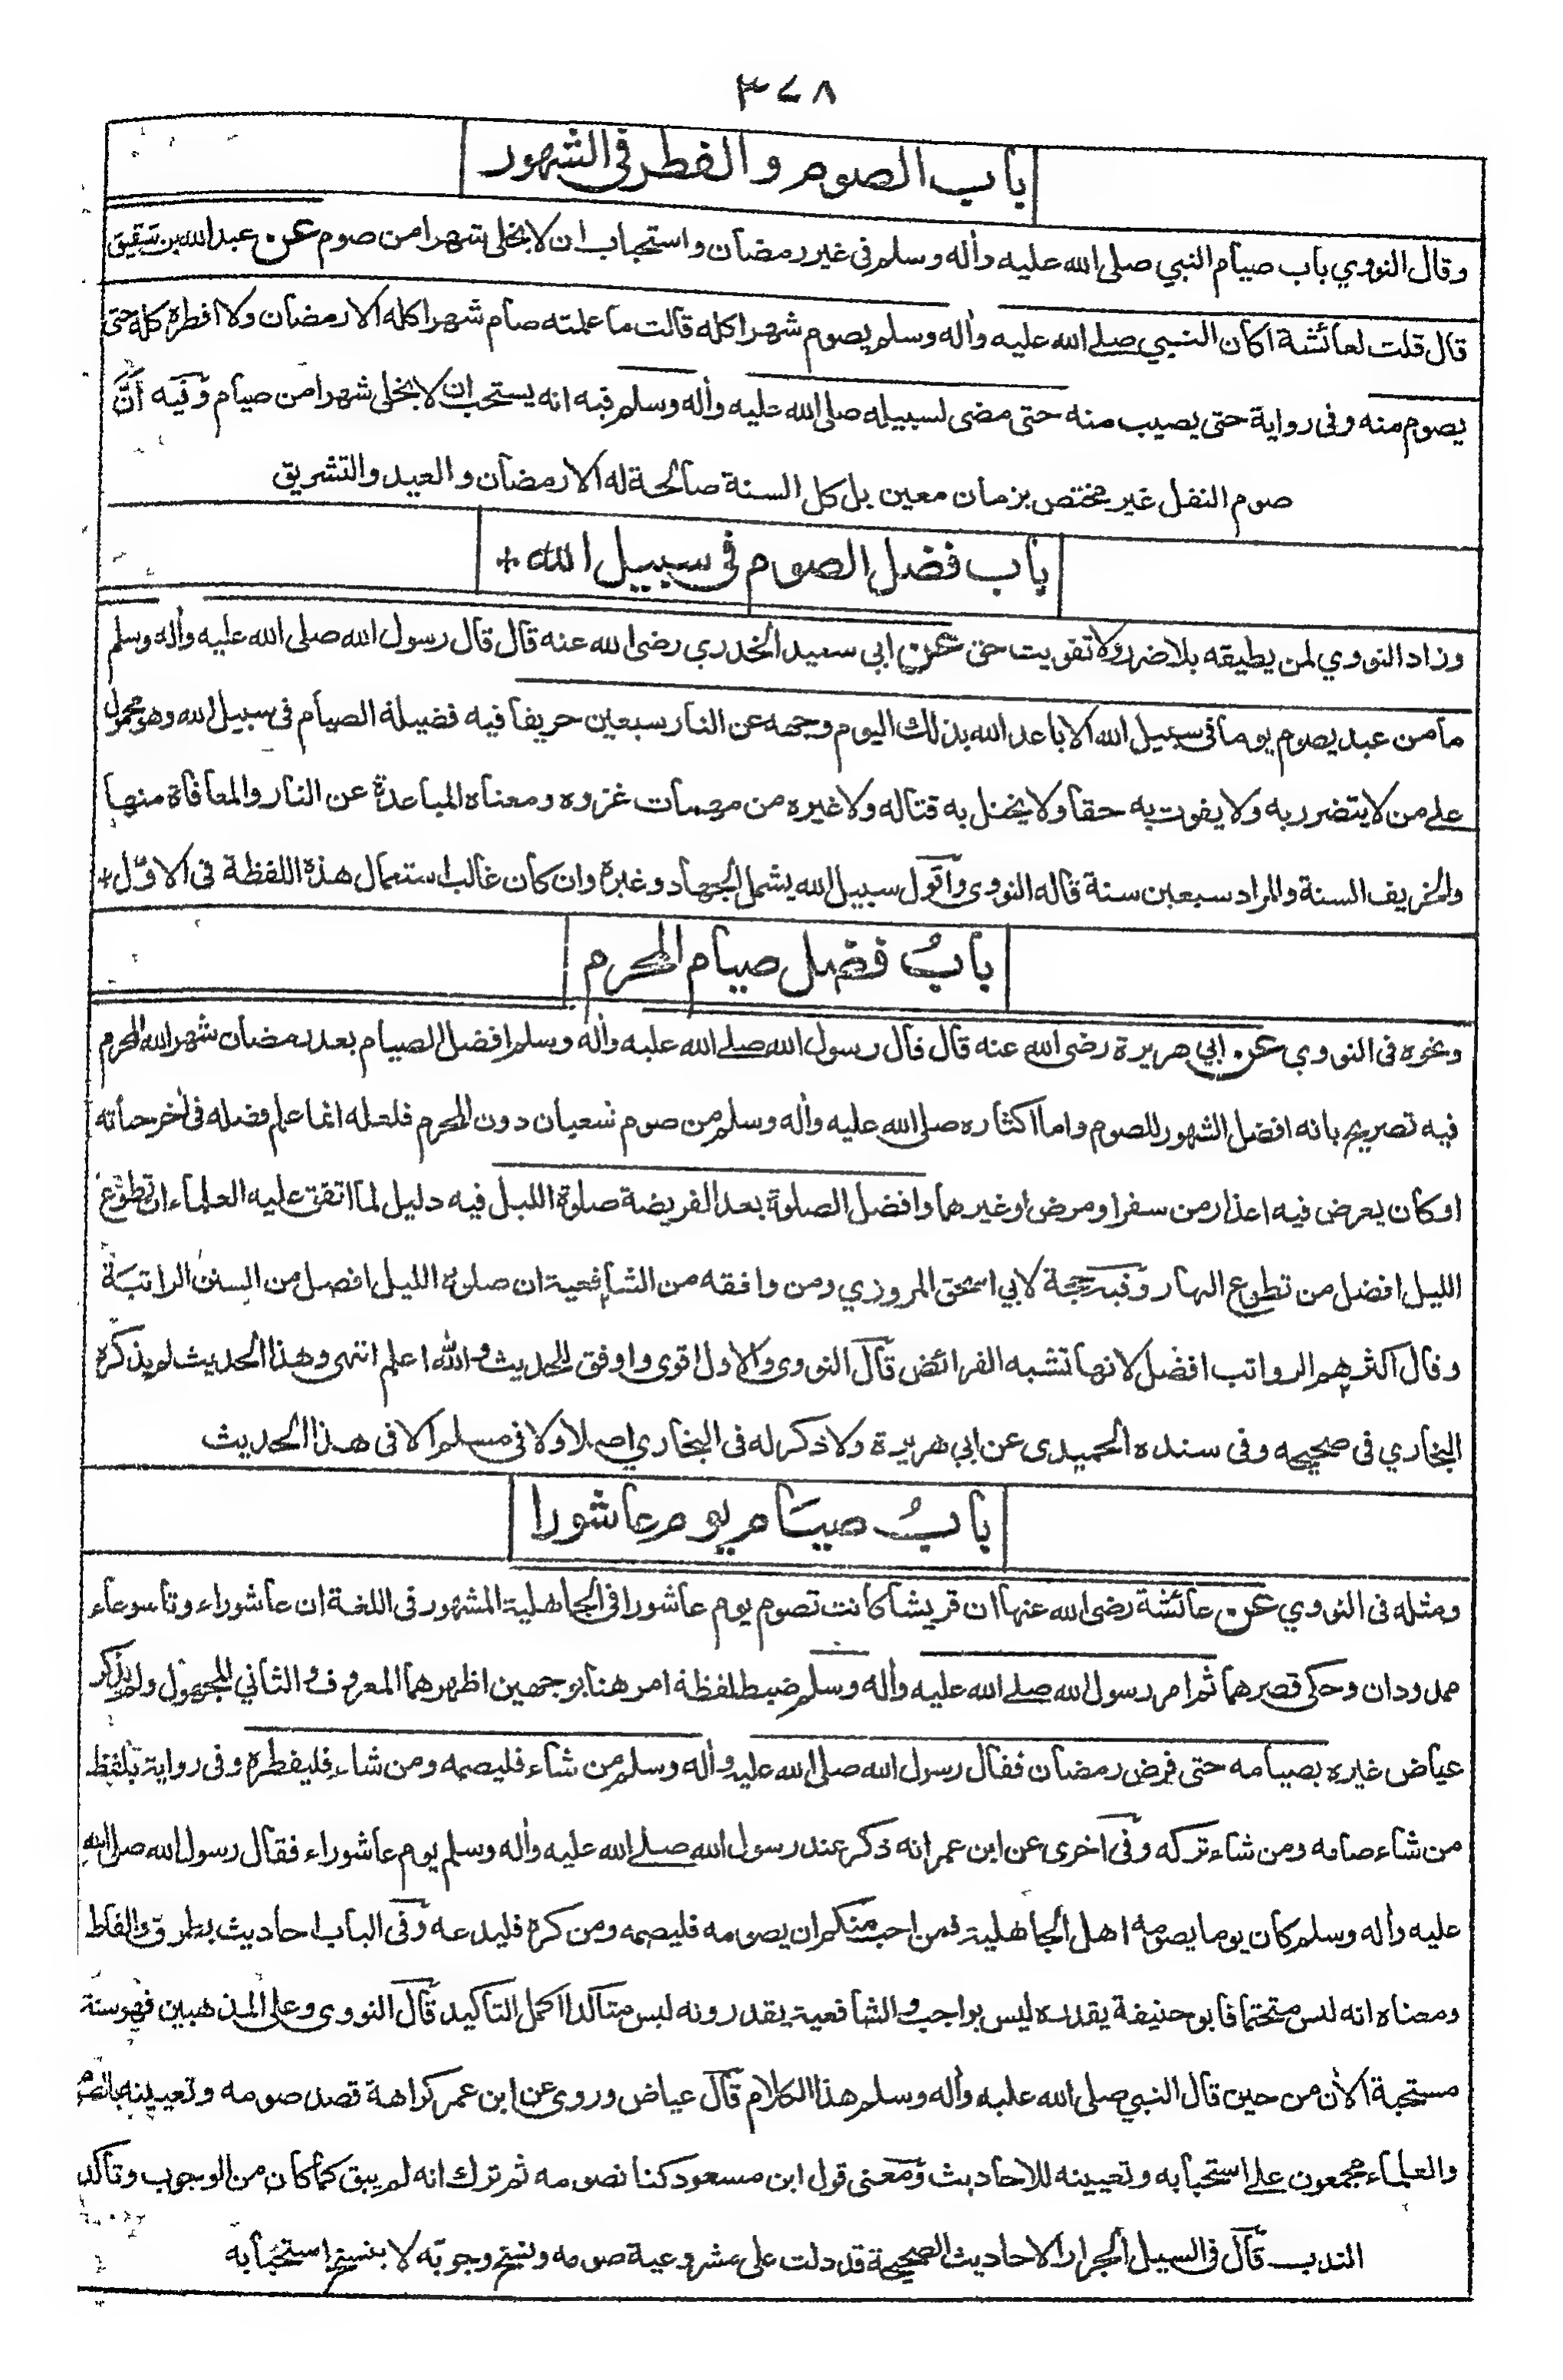 ٣٧٨
باب الصوم والفطر في الشهور
وقال النووي باب صيام النبي صلى الله عليه وأله وسلم في غير رمضان واستحباب ان لا يخلى شهرا من صوم عن عبد الله بن شقيق
قال قلت لعائشة أكان النبي صلے الله عليه وأله وسلم يصوم شهرا كله قالت ما علمته صام شهرا كله الا رمضان ولا افطره كله حتى
يصوم منه وفى رواية حتى يصيب منه حتى مضى لسبيله صلى الله عليه وأله وسلم فيه انه يستحب ان لا يخلى شهرا من صيام وفيه أنَّ
صوم النفل غير مختص بزمان معين بل كل السنة صالحة له الا رمضان والعيد والتشريق
باب فضل الصوم في سبيل الله +
وزاد النووي لمن يطيقه بلا ضرر ولا تفويت حق عن ابي سعيد الخدري رضى الله عنه قال قال رسول الله صلى الله عليه وأله وسلم
ما من عبد يصوم يوما في سبيل الله الا باعد الله بذلك اليوم وجهه عن النار سبعين خريفا فيه فضيلة الصيام في سبيل الله وهو محمول
علے من لا يتضرر به ولا يفوت به حقا ولا يختل به قتاله ولا غيره من مهمات غزوه ومعناه المباعدة عن النار والمعافاة منها
والخريف السنة والمراد سبعين سنة قاله النووى وأقول سبيل الله يشمل الجهاد وغيره وان كان غالب استعمال هذه اللفظة في الاوّل +
بابُ فضل صيام المحرم
ونحوه في النووي عن ابي هريرة رضى الله عنه قال قال رسول الله صلے الله عليه وأله وسلم افضل الصيام بعد رمضان شهر الله المحرم
فيه تصريح بانه افضل الشهور للصوم واما اكثاره صلى الله عليه وأله وسلم من صوم شعبان دون المحرم فلعله انما علم فضله في أخر حياته
او كان يعرض فيه اعذار من سفر او مرض او غيرهما وافضل الصلوة بعد الفريضة صلوة الليل فيه دليل لما اتفق عليه العلماء ان تطوّع
الليل افضل من تطوع النهار وفيه حجة لابي اسحق المروزي ومن وافقه من الشافعية ان صلوة الليل افضل من السنن الراتبة
وقال اكثرهم الرواتب افضل لانها تشبه الفرائض قال النووى والاول اقوى واوفق للحديث والله اعلم انتهى وهذا الحديث لم يذكره
البخاري في صحيحه وفى سنده الحميدى عن ابي هريرة ولا ذكر له في البخاري اصلا ولا في مسلم الا في هذا الحديث
بابُ صيام يوم عاشورا
ومثله في النووي عن عائشة رضى الله عنها ان قريشا كانت تصوم يوم عاشورا في الجاهلية المشهور في اللغة ان عاشوراء وتاسوعاء
ممدودان وحكى قصرهما ثم امر رسول الله صلے الله عليه وأله وسلم ضبط لفظة امر هنا بوجهين اظهرهما المعروف والثاني للمجهول ولم يذكر
عياض غيره بصيامه حتى فرض رمضان فقال رسول الله صلى الله عليه وأله وسلم من شاء فليصمه ومن شاء فليفطره وفى رواية بلفظ
من شاء صامه ومن شاء تركه وفى اخرى عن ابن عمر انه ذكر عند رسول الله صلے الله عليه وأله وسلم يوم عاشوراء فقال رسول الله صلى الله
عليه وأله وسلم كان يوما يصومه اهل الجاهلية فمن احب منكم ان يصومه فليصمه ومن كره فليدعه وفى الباب احاديث بطرق والفاظ
ومعناه انه ليس متحتما فابو حنيفة يقدره ليس بواجب والشافعية يقدرونه ليس متأكدا اكمل التاكيد قال النووى وعلى المذهبين فهو سنة
مستحبة الأن من حين قال النبي صلى الله عليه وأله وسلم هذا الكلام قال عياض وروى عن ابن عمر كراهة قصد صومه وتعيينه بالصوم
والعلماء مجمعون علے استحبابه وتعيينه للاحاديث ومعنى قول ابن مسعود كنا نصومه ثم ترك انه لم يبق كما كان من الوجوب وتأكد
الندب قال في السيل الجرار الاحاديث الصحيحة قد دلت على مشروعية صومه ونسخ وجوبه لا ينسخ استحبابه